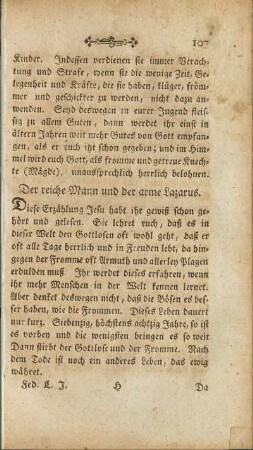 107
Kinder. Indessen verdienen sie immer Verach-
tung und Strafe, wenn sie die wenige Zeit, Ge-
legenheit und Kräfte, die sie haben, klüger, fröm-
mer und geschickter zu werden, nicht dazu an-
wenden. Seyd deswegen in eurer Jugend fleis-
sig zu allem Guten, dann werdet ihr einst in
ältern Jahren weit mehr Gutes von Gott empfan-
gen, als er euch itzt schon gegeben; und im Him-
mel wird euch Gott, als fromme und getreue Knech-
te (Mägde), unaussprechlich herrlich belohnen.
Der reiche Mann und der arme Lazarus.
Diese Erzählung Jesu habt ihr gewiß schon ge-
hört und gelesen. Sie lehret euch, daß es in
dieser Welt den Gottlosen oft wohl geht, daß er
oft alle Tage herrlich und in Freuden lebt, da hin-
gegen der Fromme oft Armuth und allerley Plagen
erdulden muß. Ihr werdet dieses erfahren, wenn
ihr mehr Menschen in der Welt kennen lernet.
Aber denket deswegen nicht, daß die Bösen es bes-
ser haben, wie die Frommen. Dieses Leben dauert
nur kurz. Siebenzig, höchstens achtzig Jahre, so ist
es vorbey und die wenigsten bringen es so weit
Dann stirbt der Gottlose und der Fromme. Nach
dem Tode ist noch ein anderes Leben, das ewig
währet.
Fed. C. J. H Da